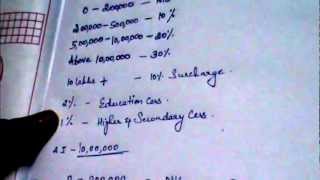 0 - 200000 - Nil
200,000 - 500,000 - 10%
5,00,000 - 10,00,000 - 20%
Above 10,00,000 - 30%
10 Lakhs + - 10% Surcharge.
2% - Education Cess.
1% - Higher & Secondary Cess.
10,00,000
0 - 200000 - Nil